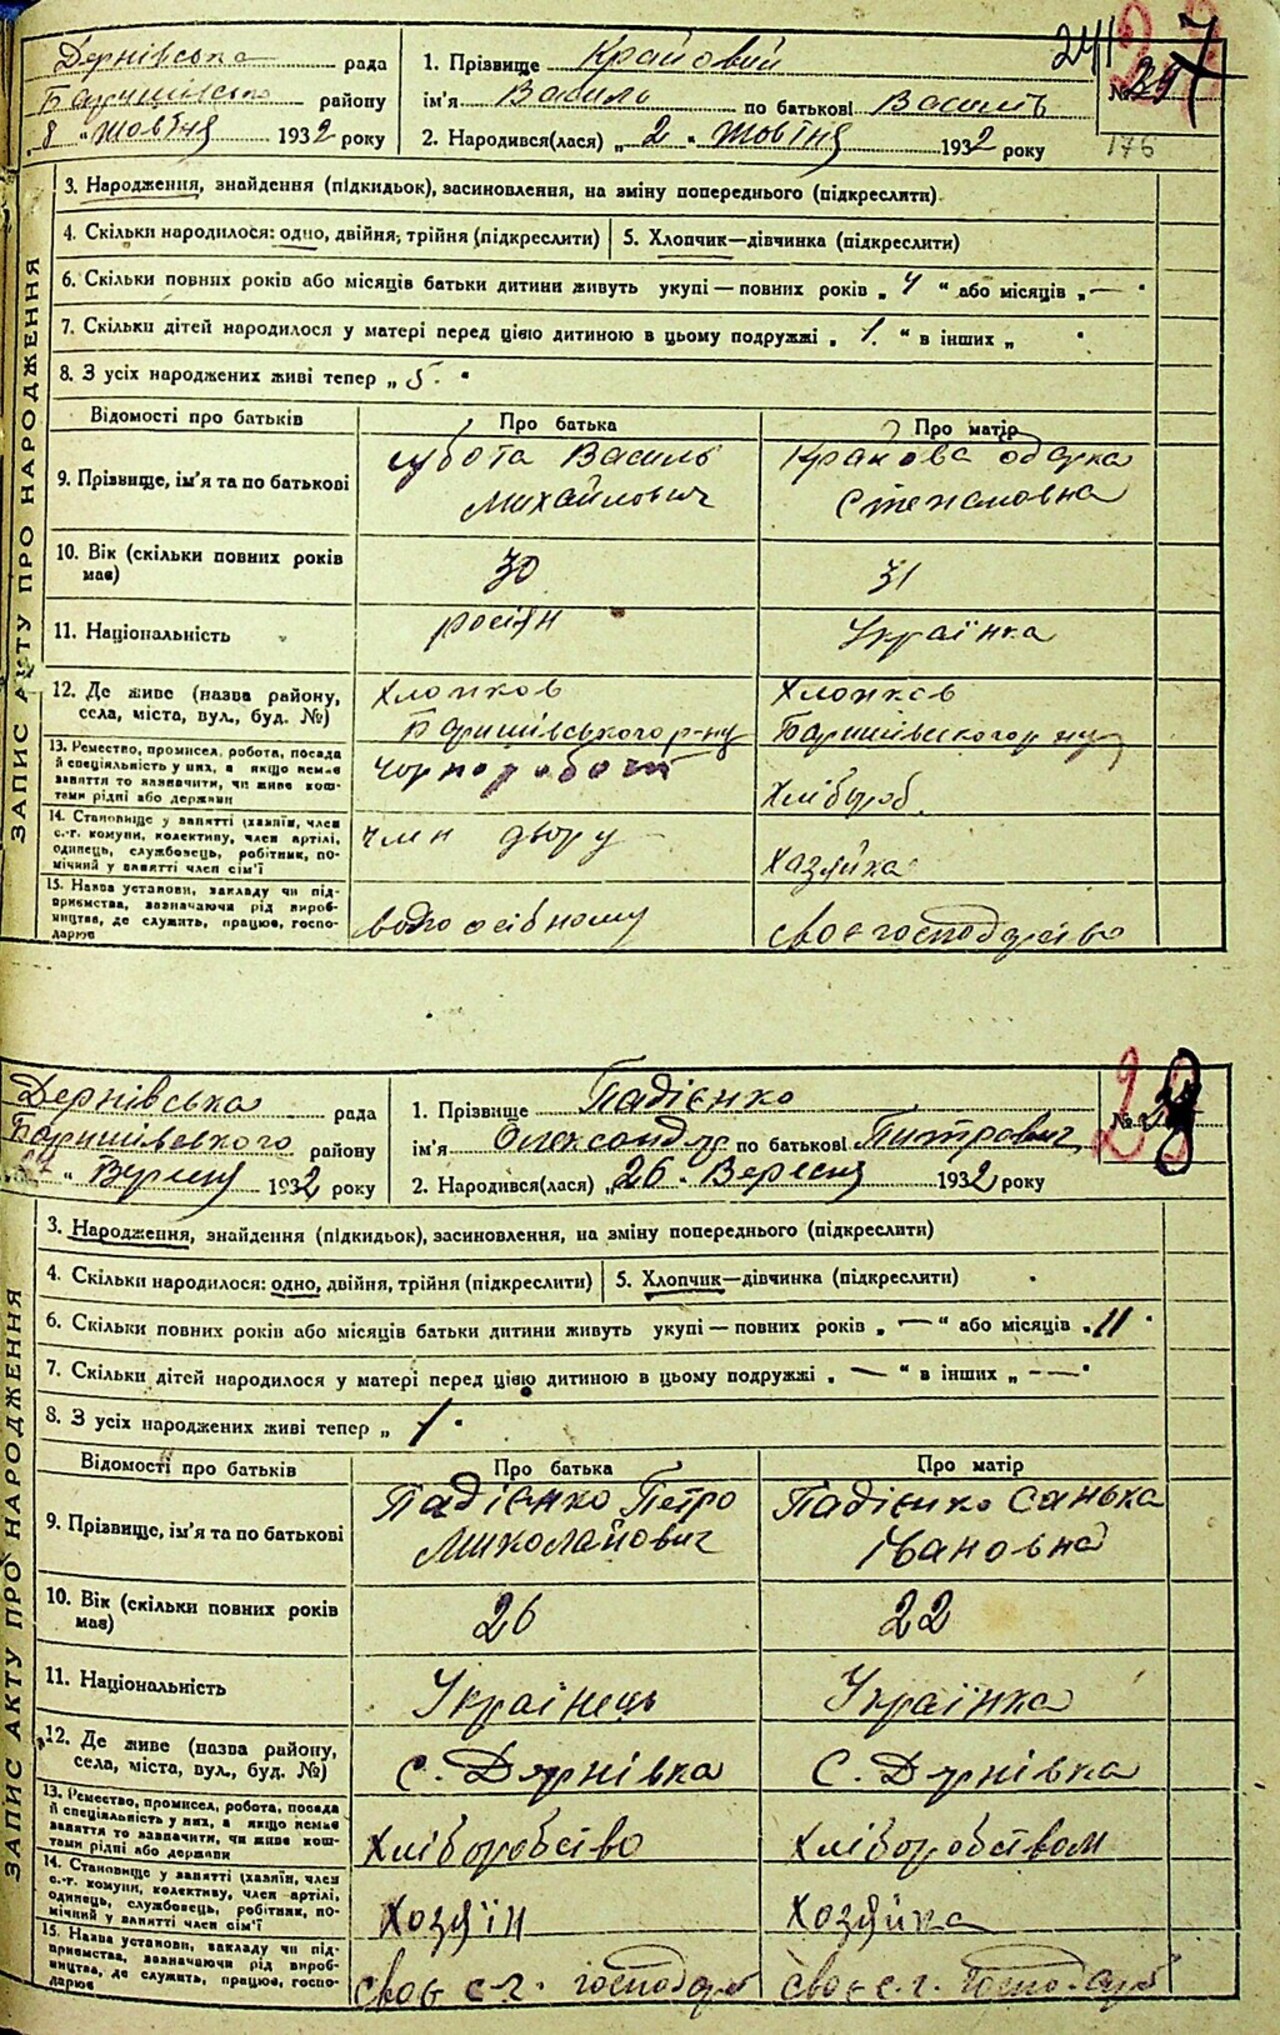 Дернівська рада
Баришівсько району
8 " жовтня 1932 року
1. Прізвище Крайовий
ім'я Василь по батькові Василь
2. Народився(лася) „ 2 " жовтня 1932 року
241
27
№ 24
176
ЗАПИС АКТУ ПРО НАРОДЖЕННЯ
3. Народження, знайдення (підкидьок), засиновлення, на зміну попереднього (підкреслити)
4. Скільки народилося: одно, двійня, трійня (підкреслити)
5. Хлопчик—дівчинка (підкреслити)
6. Скільки повних років або місяців батьки дитини живуть укупі — повних років „ 4 “ або місяців „ — "
7. Скільки дітей народилося у матері перед цією дитиною в цьому подружжі „ 1. “ в інших „ "
8. З усіх народжених живі тепер „ 5. "
Відомості про батьків
Про батька
Про матір
9. Прізвище, ім'я та по батькові
Василь
Михайлович
Крайова Одарка
Степановна
10. Вік (скільки повних років
має)
30
31
11. Національність
росіян
Українка
12. Де живе (назва району,
села, міста, вул., буд. №)
Хлопков
Баришівського р-ну
Хлопков
Баришівського р ну
13. Ремество, промисел, робота, посада
й спеціяльність у них, а якщо немає
заняття то зазначити, чи живе кош-
тами рідні або держави
Чорноробочій
Хлібороб
14. Становище у занятті (хазяїн, член
с.-г. комуни, колективу, член артілі,
одинець, службовець, робітник, по-
мічний у занятті член сім'ї
член двору
Хазяйка
15. Назва установи, закладу чи під-
приємства, зазначаючи рід вироб-
ництва, де служить, працює, госпо-
дарює
водноосібному
своє господарство
Дернівська рада
Баришівського району
" Вересня 1932 року
1. Прізвище Падієнко
ім'я Олександр по батькові Питрович
2. Народився(лася) „ 26 " Вересня 1932 року
28
№
ЗАПИС АКТУ ПРО НАРОДЖЕННЯ
3. Народження, знайдення (підкидьок), засиновлення, на зміну попереднього (підкреслити)
4. Скільки народилося: одно, двійня, трійня (підкреслити)
5. Хлопчик—дівчинка (підкреслити)
6. Скільки повних років або місяців батьки дитини живуть укупі — повних років „ — “ або місяців „ 11 "
7. Скільки дітей народилося у матері перед цією дитиною в цьому подружжі „ — “ в інших „ — "
8. З усіх народжених живі тепер „ 1 "
Відомості про батьків
Про батька
Про матір
9. Прізвище, ім'я та по батькові
Падієнко Петро
Миколайович
Падієнко Санька
Івановна
10. Вік (скільки повних років
має)
26
22
11. Національність
Українець
Українка
12. Де живе (назва району,
села, міста, вул., буд. №)
с. Дернівка
с. Дернівка
13. Ремество, промисел, робота, посада
й спеціяльність у них, а якщо немає
заняття то зазначити, чи живе кош-
тами рідні або держави
Хліборобство
Хліборобством
14. Становище у занятті (хазяїн, член
с.-г. комуни, колективу, член артілі,
одинець, службовець, робітник, по-
мічний у занятті член сім'ї
Хозяїн
Хозяйка
15. Назва установи, закладу чи під-
приємства, зазначаючи рід вироб-
ництва, де служить, працює, госпо-
дарює
своє с-г. господар
своє с.г. господар